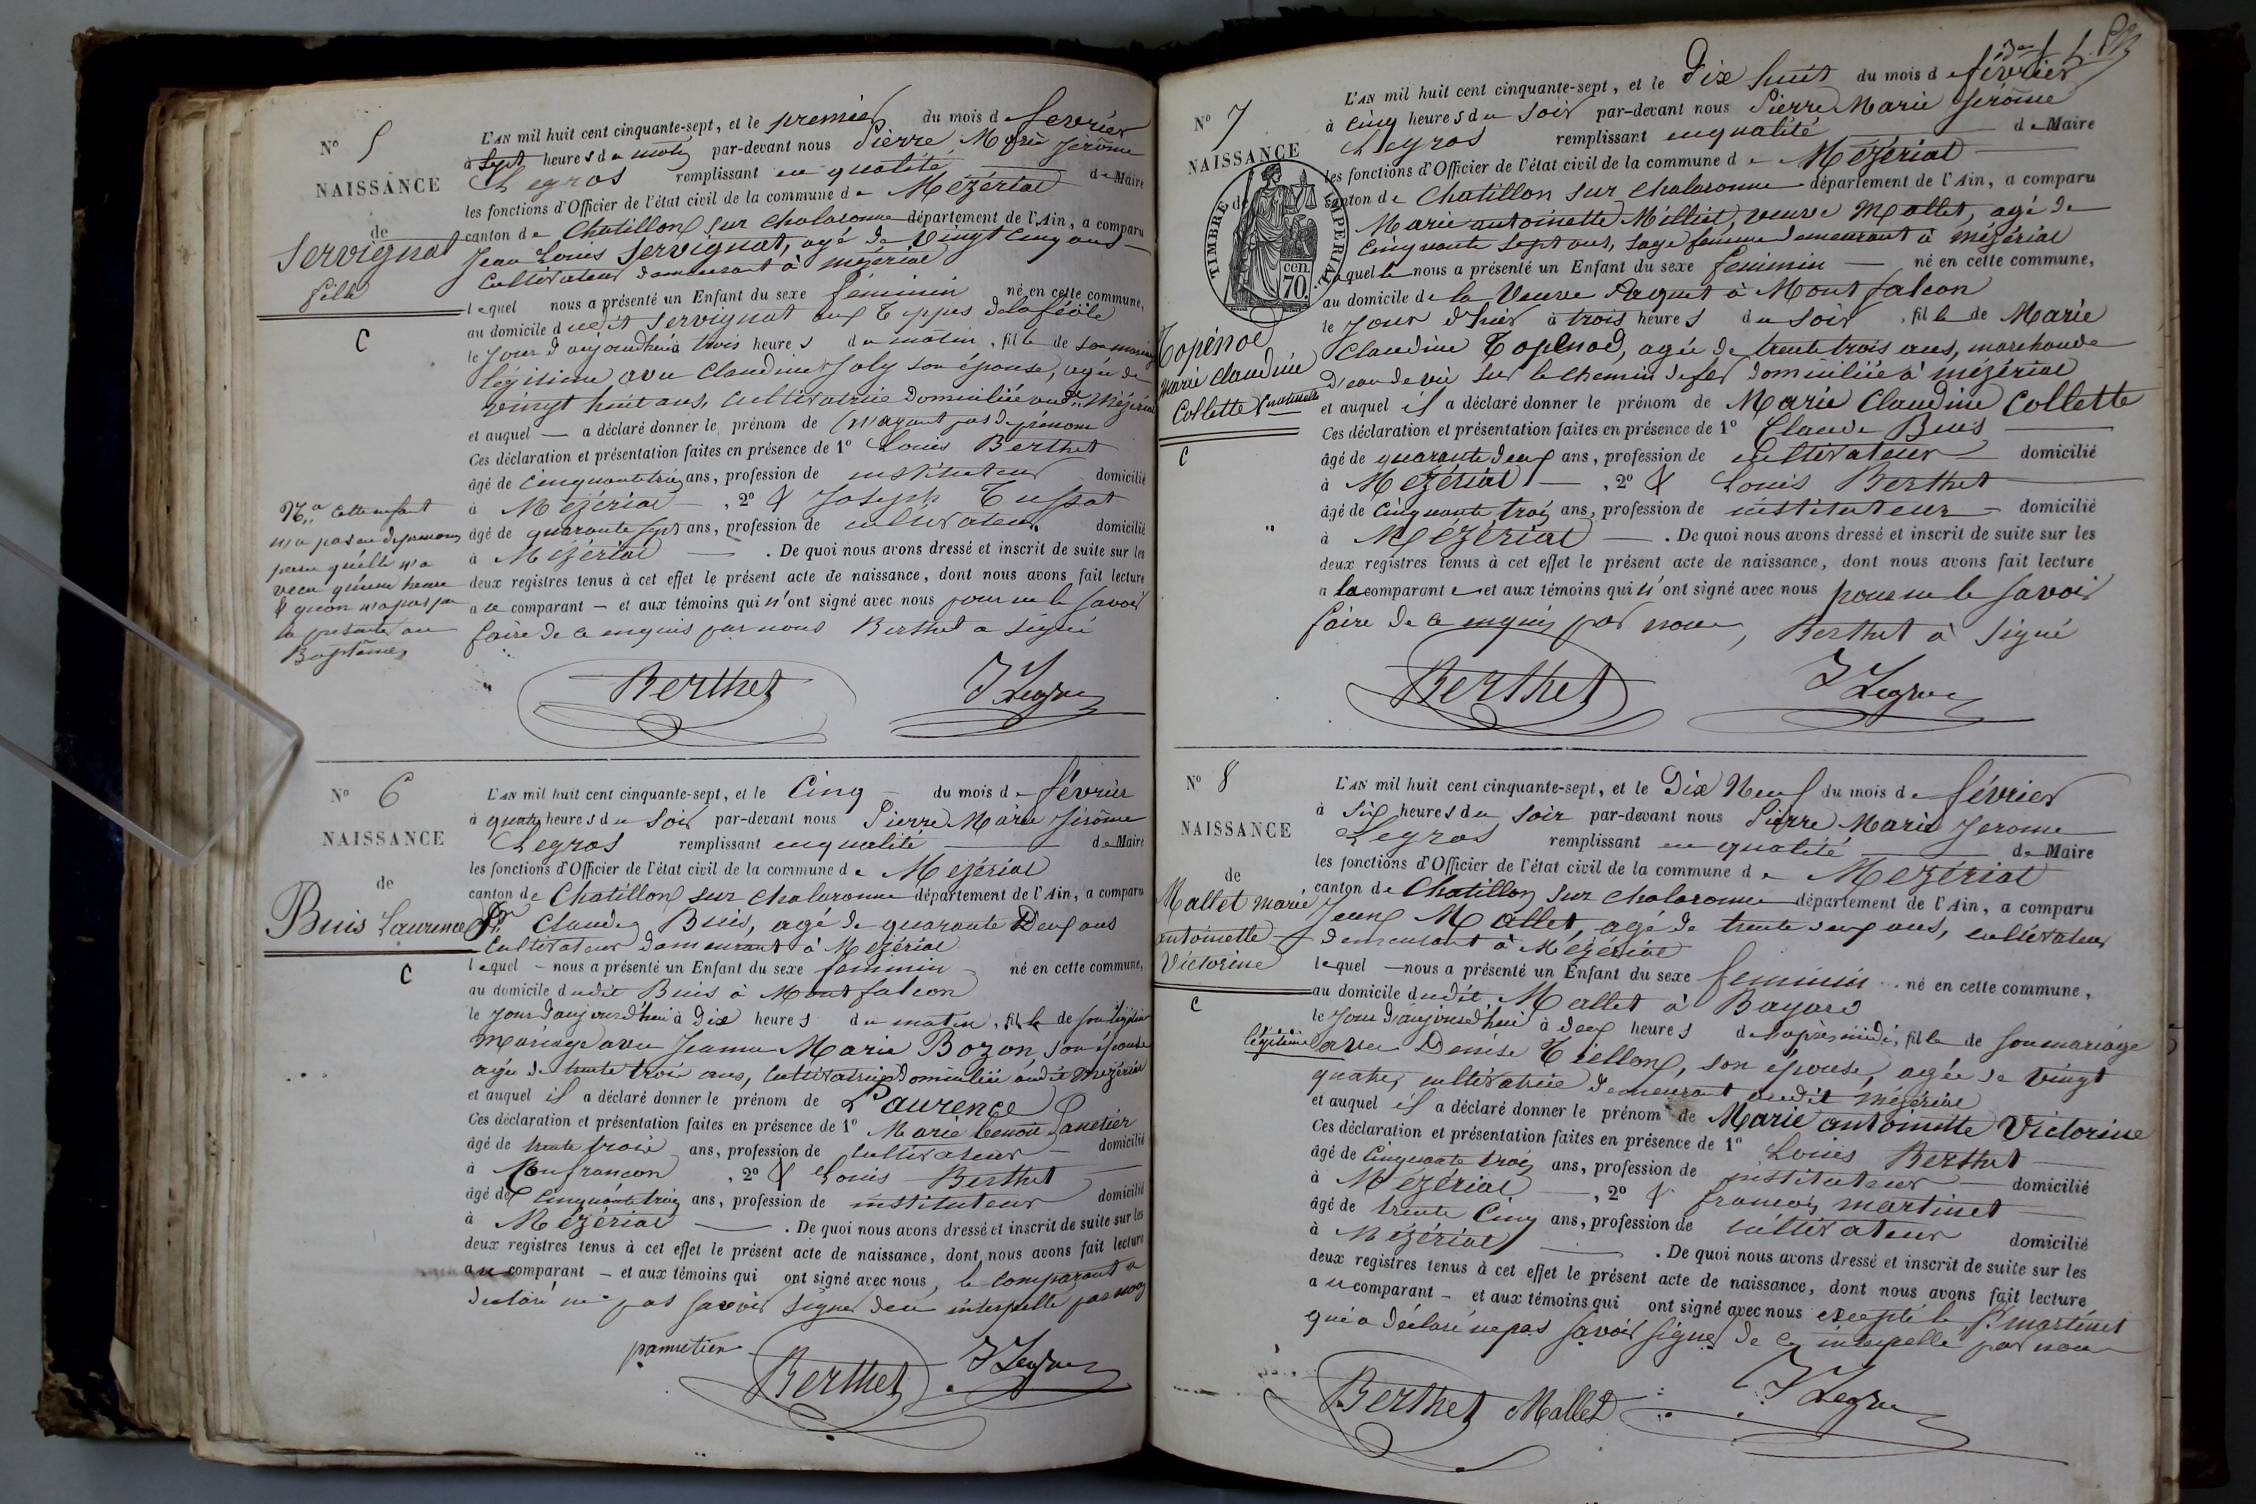 N° 5
NAISSANCE
de
Servignat
fille
C
L'AN mil huit cent cinquante-sept, et le premier du mois de fevrier
à sept heures du matin par-devant nous Pierre Marie Jérôme
Legros remplissant en qualité de Maire
les fonctions d'Officier de l'état civil de la commune de Mézériat
canton de Chatillon sur Chalaronne département de l'Ain, a comparu
Jean Louis Servignat, agé de vingt cinq ans
Cultivateur demeurant à mézériat
lequel nous a présenté un Enfant du sexe féminin né en cette commune,
au domicile dudit Servignat aux Teppes
le jour d'aujourdhui à trois heures du matin, fille de son mariage
légitime avec Claudine Joly son épouse, agée de
vingt huit ans, cultivatrice domiciliée audt Mézériat
et auquel — a déclaré donner le prénom de (n'ayant pas de prénom
Ces déclaration et présentation faites en présence de 1° Louis Berthet
âgé de cinquante trois ans, profession de instituteur domicilié
à Mézériat — , 2° & Joseph Tussat
âgé de quarante sept ans, profession de cultivateur domicilié
à Mézériat — . De quoi nous avons dressé et inscrit de suite sur les
deux registres tenus à cet effet le présent acte de naissance, dont nous avons fait lecture
a ce comparant — et aux témoins qui n'ont signé avec nous pour ne le savoir
faire de ce enquis par nous Berthet a signé
Na cette enfant
n'a pas eu de prenom
parce qu'elle n'a
vecu qu'une heure
& qu'on n'a pas pu
la presenter au
Baptême
Berthet J Legros
N° 6
NAISSANCE
de
Buis Laurence
C
L'AN mil huit cent cinquante-sept, et le Cinq du mois de février
à quatre heures du soir par-devant nous Pierre Marie Jérôme
Legros remplissant en qualité de Maire
les fonctions d'Officier de l'état civil de la commune de Mézériat
canton de Chatillon sur Chalaronne département de l'Ain, a comparu
Claude Buis, agé de quarante Deux ans
Cultivateur demeurant à Mézériat
lequel - nous a présenté un Enfant du sexe feminin né en cette commune,
au domicile dudit Buis à Montfalcon
le jour d'aujourd'hui à Dix heures du matin, fille de son légitime
mariage avec Jeanne Marie Bozon, son épouse
agée de trente trois ans, cultivatrice domiciliée audit Mézériat
et auquel il a déclaré donner le prénom de Laurence
Ces déclaration et présentation faites en présence de 1° Marie benoit Panetier
âgé de trente trois ans, profession de cultivateur domicilié
à Confrançon , 2° & Louis Berthet
âgé de cinquante trois ans, profession de instituteur domicilié
à Mézériat — . De quoi nous avons dressé et inscrit de suite sur les
deux registres tenus à cet effet le présent acte de naissance, dont nous avons fait lecture
au comparant — et aux témoins qui ont signé avec nous, le comparant a
declaré ne pas savoir signer de ce interpellé par nous
pannetier Berthet J Legros
N° 7
NAISSANCE
de
TIMBRE IMPERIAL
70 cen.
Topénod
Marie Claudine
Collette
C
L'AN mil huit cent cinquante-sept, et le Dix huit du mois de février
à cinq heures du soir par-devant nous Pierre Marie Jérôme
Legros remplissant en qualité de Maire
les fonctions d'Officier de l'état civil de la commune de Mézériat
canton de Chatillon sur Chalaronne département de l'Ain, a comparu
Marie antoinette Milliet, veuve Mallet, agé de
Cinquante sept ans, sage femme demeurant à mézériat
laquelle nous a présenté un Enfant du sexe feminin — né en cette commune,
au domicile de la Veuve Paquet à Montfalcon
le jour d'hier à trois heures du soir, fille de Marie
Claudine Topénod, agée de trente trois ans, marchande
d'eau de vie sur le chemin de fer domiciliée à mézériat
et auquel il a déclaré donner le prénom de Marie Claudine Collette
Ces déclaration et présentation faites en présence de 1° Claude Buis
âgé de quarante deux ans, profession de cultivateur domicilié
à Mézériat — , 2° & Louis Berthet
âgé de cinquante trois ans, profession de instituteur — domicilié
à Mézériat — . De quoi nous avons dressé et inscrit de suite sur les
deux registres tenus à cet effet le présent acte de naissance, dont nous avons fait lecture
a la comparante et aux témoins qui n'ont signé avec nous pour ne le savoir
faire de ce enquis par nous, Berthet à signé
Berthet J Legros
N° 8
NAISSANCE
de
Mallet marie
antoinette
Victorine
C
L'AN mil huit cent cinquante-sept, et le Dix Neuf du mois de février
à six heures du soir par-devant nous Pierre Marie Jerome
Legros remplissant en qualité de Maire
les fonctions d'Officier de l'état civil de la commune de Mézériat
canton de Chatillon sur Chalaronne département de l'Ain, a comparu
Jean Mallet, agé de trente deux ans, cultivateur
demeurant à Mézériat
lequel — nous a présenté un Enfant du sexe feminin né en cette commune,
au domicile dudit Mallet à Bayard
le jour d'aujourd'hui à deux heures de l'après midi, fille de son mariage
légitime avec Denise Tiellon, son épouse, agée de vingt
quatre, cultivatrice demeurant audit mézériat
et auquel il a déclaré donner le prénom de Marie antoinette Victorine
Ces déclaration et présentation faites en présence de 1° Louis Berthet
âgé de cinquante trois ans, profession de instituteur — domicilié
à Mézériat — , 2° & françois martinet
âgé de trente cinq ans, profession de cultivateur domicilié
à Mézériat — . De quoi nous avons dressé et inscrit de suite sur les
deux registres tenus à cet effet le présent acte de naissance, dont nous avons fait lecture
au comparant — et aux témoins qui ont signé avec nous excepté le sr martinet
qui a déclaré ne pas savoir signer de ce interpellé par nous
Berthet Mallet J Legros